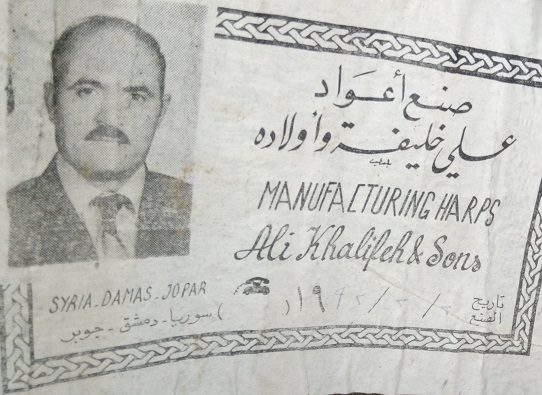 صنع أعواد
علي خليفة وأولاده
MANUFACTURING HARPS
Ali Khalifeh & Sons
SYRIA-DAMAS-JOPAR
سوريا - دمشق - جوبر ( )
تاريخ
الصنع